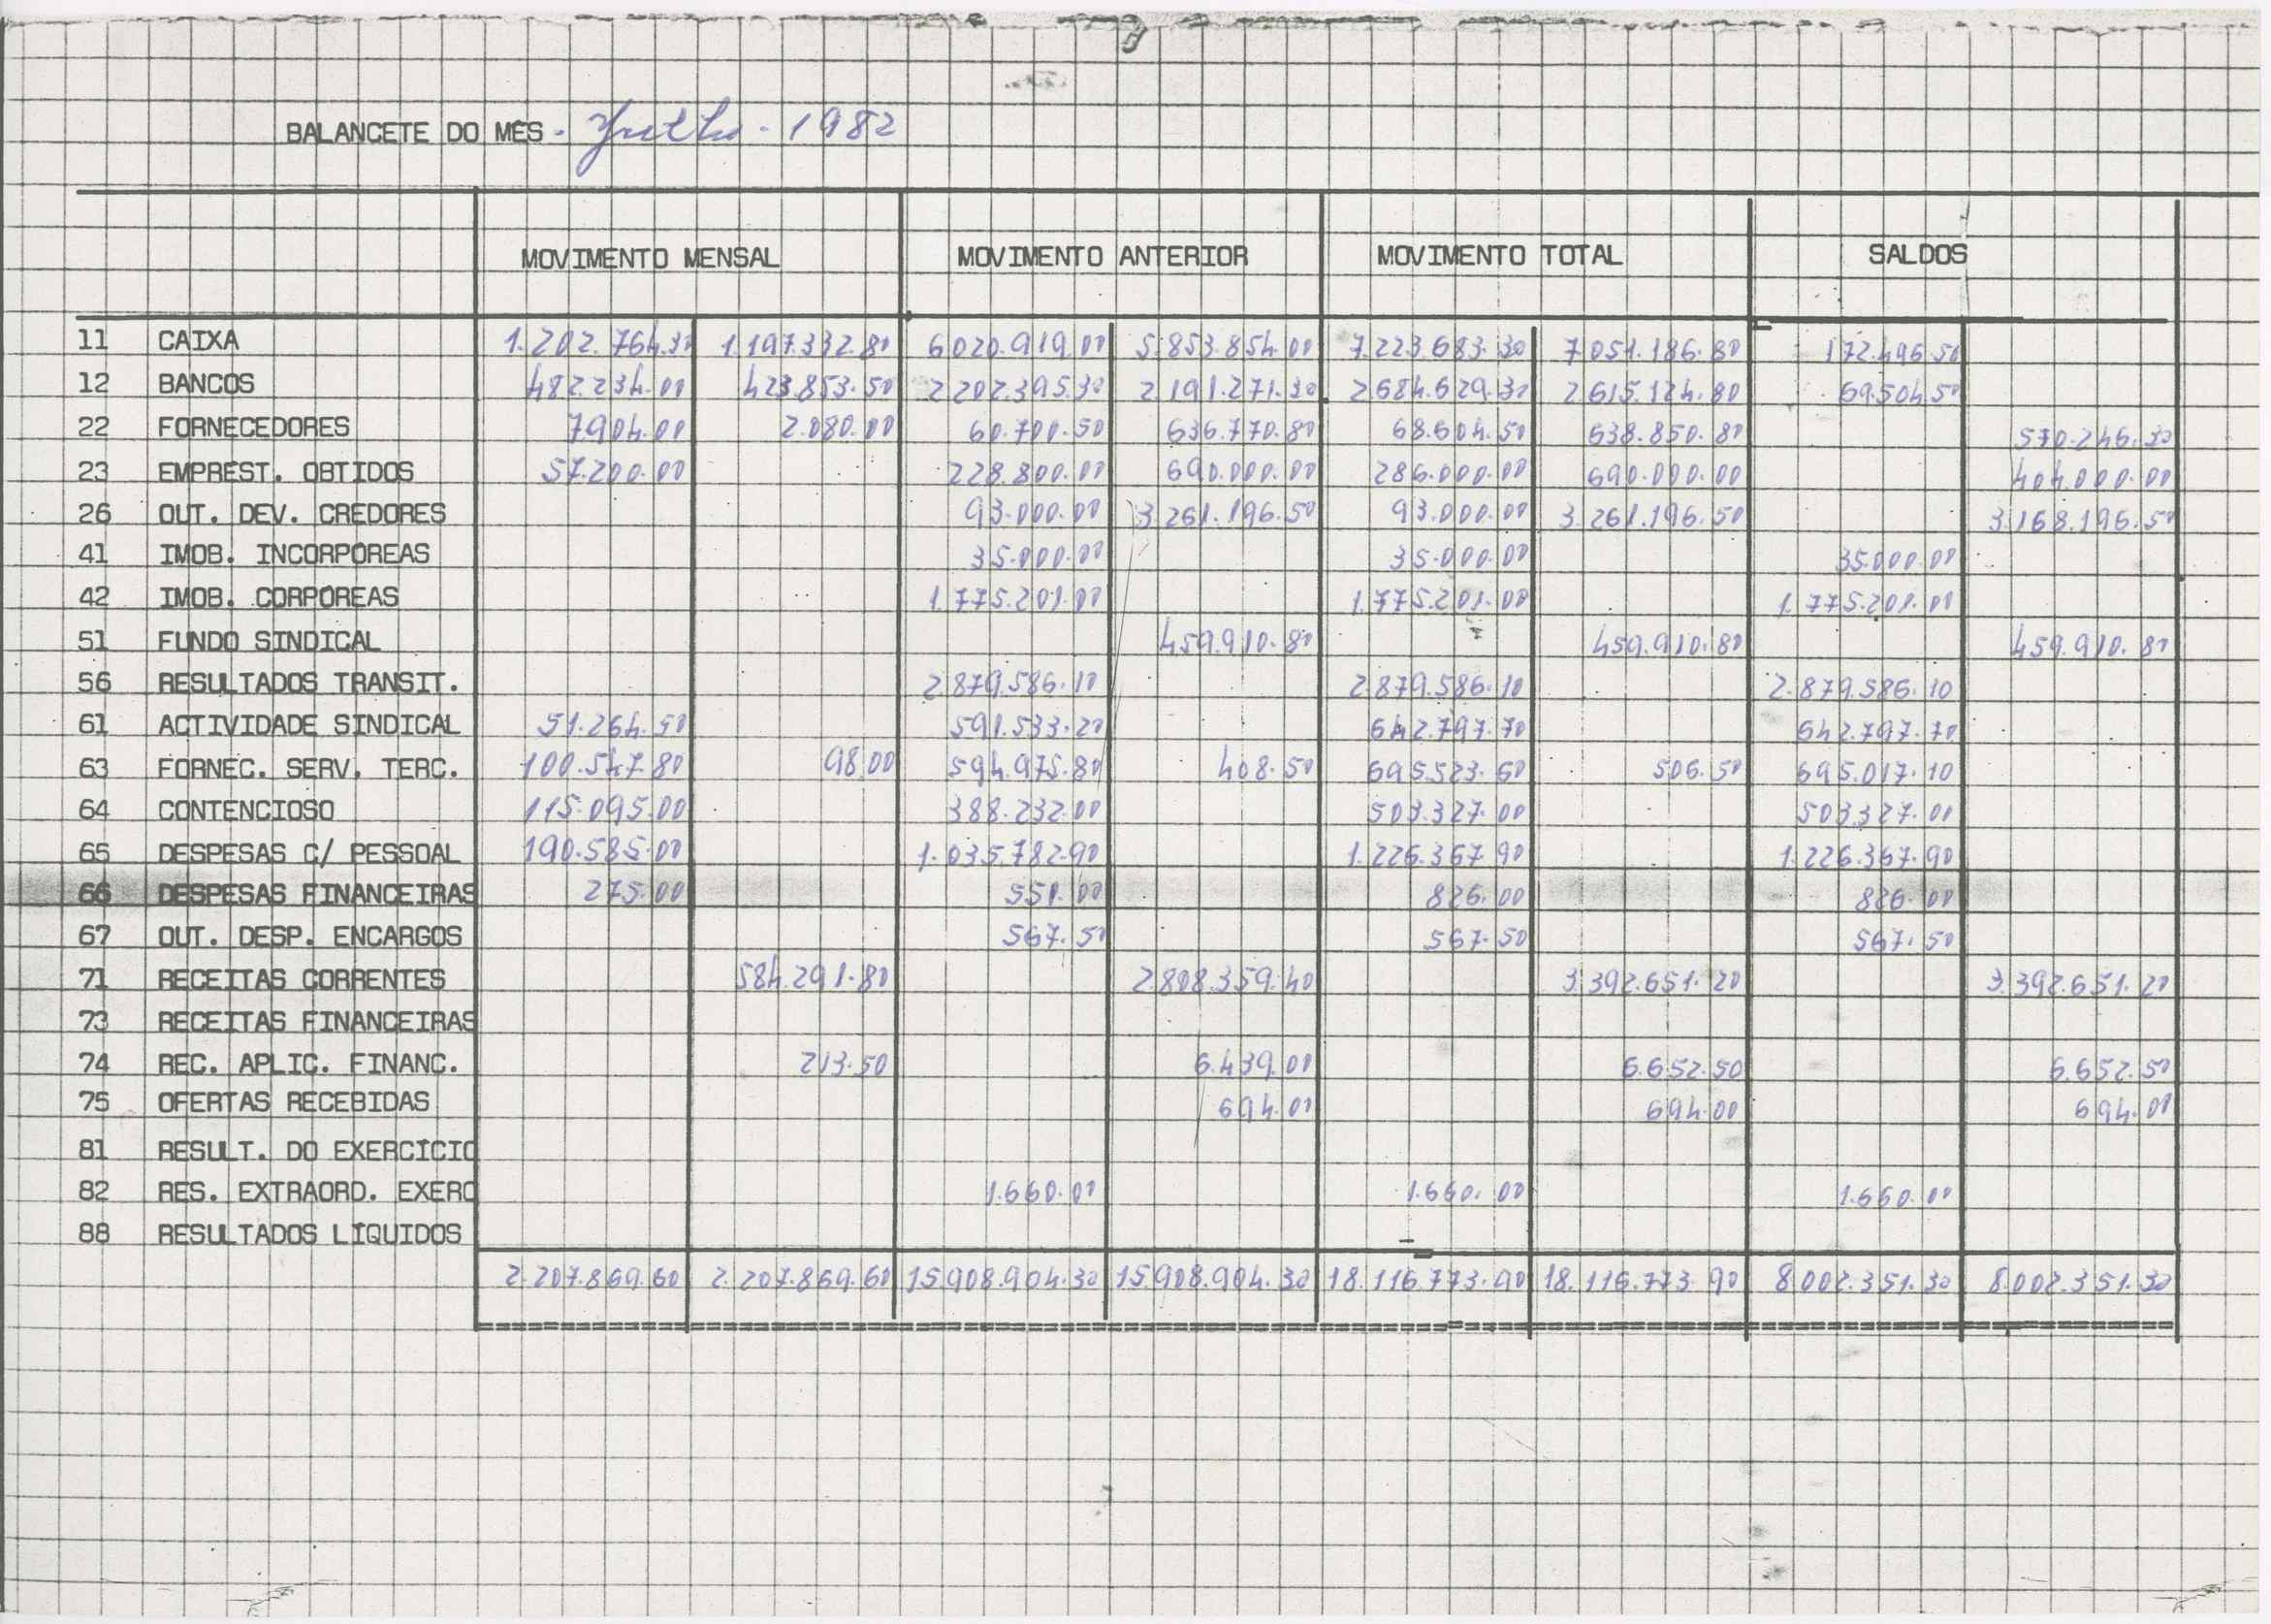 BALANCETE DO MÊS - Julho - 1982
MOVIMENTO MENSAL MOVIMENTO ANTERIOR MOVIMENTO TOTAL SALDOS
11 CAIXA 1.202.764.30 1.197.332.80 6020.919.00 5.853.854.00 7.223683.30 7051.186.80 172.496.50
12 BANCOS 482.234.00 423.853.50 2202.395.30 2.191.271.30 2.684.629.30 2615.124.80 69.504.50
22 FORNECEDORES 7904.00 2.080.00 60.700.50 636.770.80 68.604.50 638.850.80 570.246.30
23 EMPREST. OBTIDOS 57.200.00 228.800.00 690.000.00 286.000.00 690.000.00 404.000.00
26 OUT. DEV. CREDORES 93.000.00 3.261.196.50 93.000.00 3.261.196.50 3.168.196.50
41 IMOB. INCORPOREAS 35.000.00 35.000.00 35.000.00
42 IMOB. CORPOREAS 1.775.201.00 1.775.201.00 1.775.201.00
51 FUNDO SINDICAL 459.910.80 459.910.80 459.910.80
56 RESULTADOS TRANSIT. 2.879.586.10 2.879.586.10 2.879.586.10
61 ACTIVIDADE SINDICAL 51.264.50 591.533.20 642.797.70 642.797.70
63 FORNEC. SERV. TERC. 100.547.80 98.00 594.975.80 408.50 695523.60 506.50 695.017.10
64 CONTENCIOSO 115.095.00 388.232.00 503.327.00 503327.00
65 DESPESAS C/ PESSOAL 190.585.00 1.035.782.90 1.226.367.90 1.226.367.90
66 DESPESAS FINANCEIRAS 275.00 551.00 826.00 826.00
67 OUT. DESP. ENCARGOS 567.50 567.50 567.50
71 RECEITAS CORRENTES 584.291.80 2.808.359.40 3.392.651.20 3.392.651.20
73 RECEITAS FINANCEIRAS
74 REC. APLIC. FINANC. 213.50 6.439.00 6.652.50 6.652.50
75 OFERTAS RECEBIDAS 694.00 694.00 694.00
81 RESULT. DO EXERCÍCIO
82 RES. EXTRAORD. EXERC 1.660.00 1.660.00 1.660.00
88 RESULTADOS LÍQUIDOS
2.207.869.60 2.207.869.60 15.908.904.30 15.908.904.30 18.116.773.90 18.116.773.90 8.002.351.30 8.002.351.30